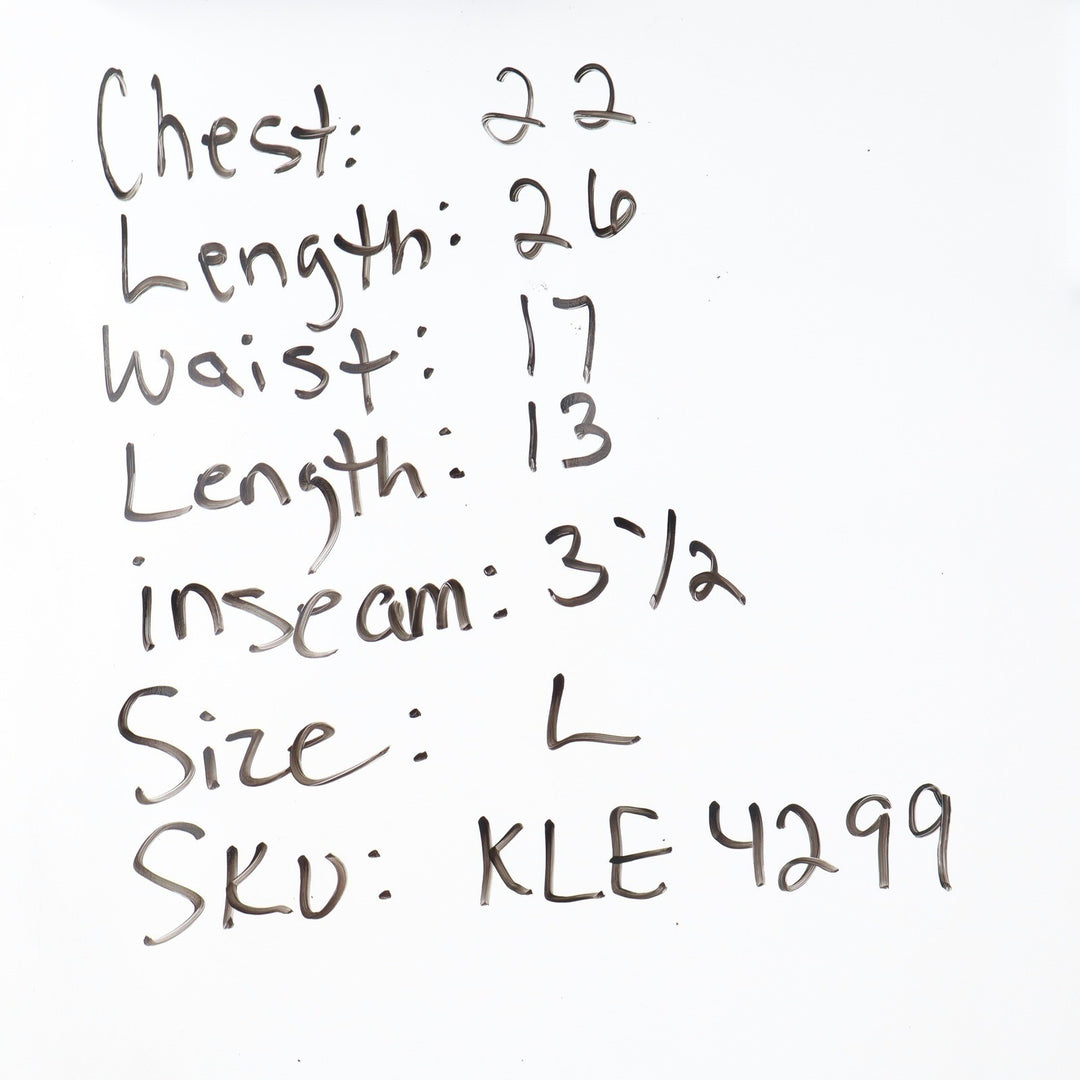 Chest: 22
Length: 26
Waist: 17
Length: 13
inseam: 3-1/2
Size: L
SKU: KLE4299